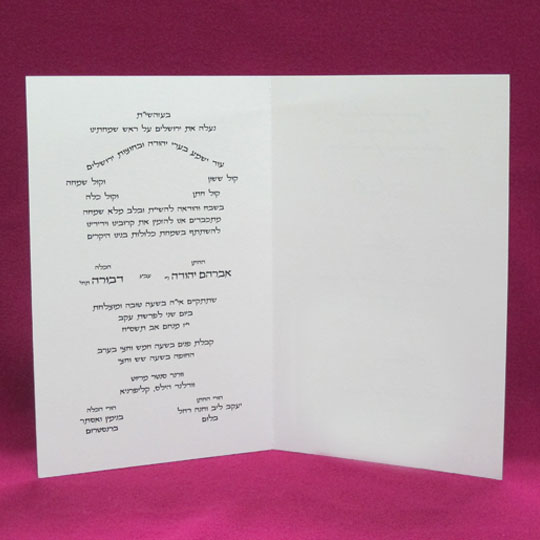 בעזהשי"ת
נעלה את ירושלים על ראש שמחתינו
עוד ישמע בערי יהודה ובחוצות ירושלים
קול ששון וקול שמחה
קול חתן וקול כלה
בשבח והודאה להשי"ת ובלב מלא שמחה
מתכבדים אנו להזמין את קרובינו וידידינו
להשתתף בשמחת כלולות בנינו היקרים
החתן הכלה
אברהם יהודה ני' עב"ג דבורה תחי'
שתתקיים אי"ה בשעה טובה ומוצלחת
ביום שני לפרשת עקב
י"ז מנחם אב תשס"ח
קבלת פנים בשעה חמש וחצי בערב
החופה בשעה שש וחצי
וורנר סנטר מריוט
וודלנד הילס, קליפורניא
הורי החתן
יעקב ליב וחנה רחל
בלום
הורי הכלה
בנימין ואסתר
ברנסטרום